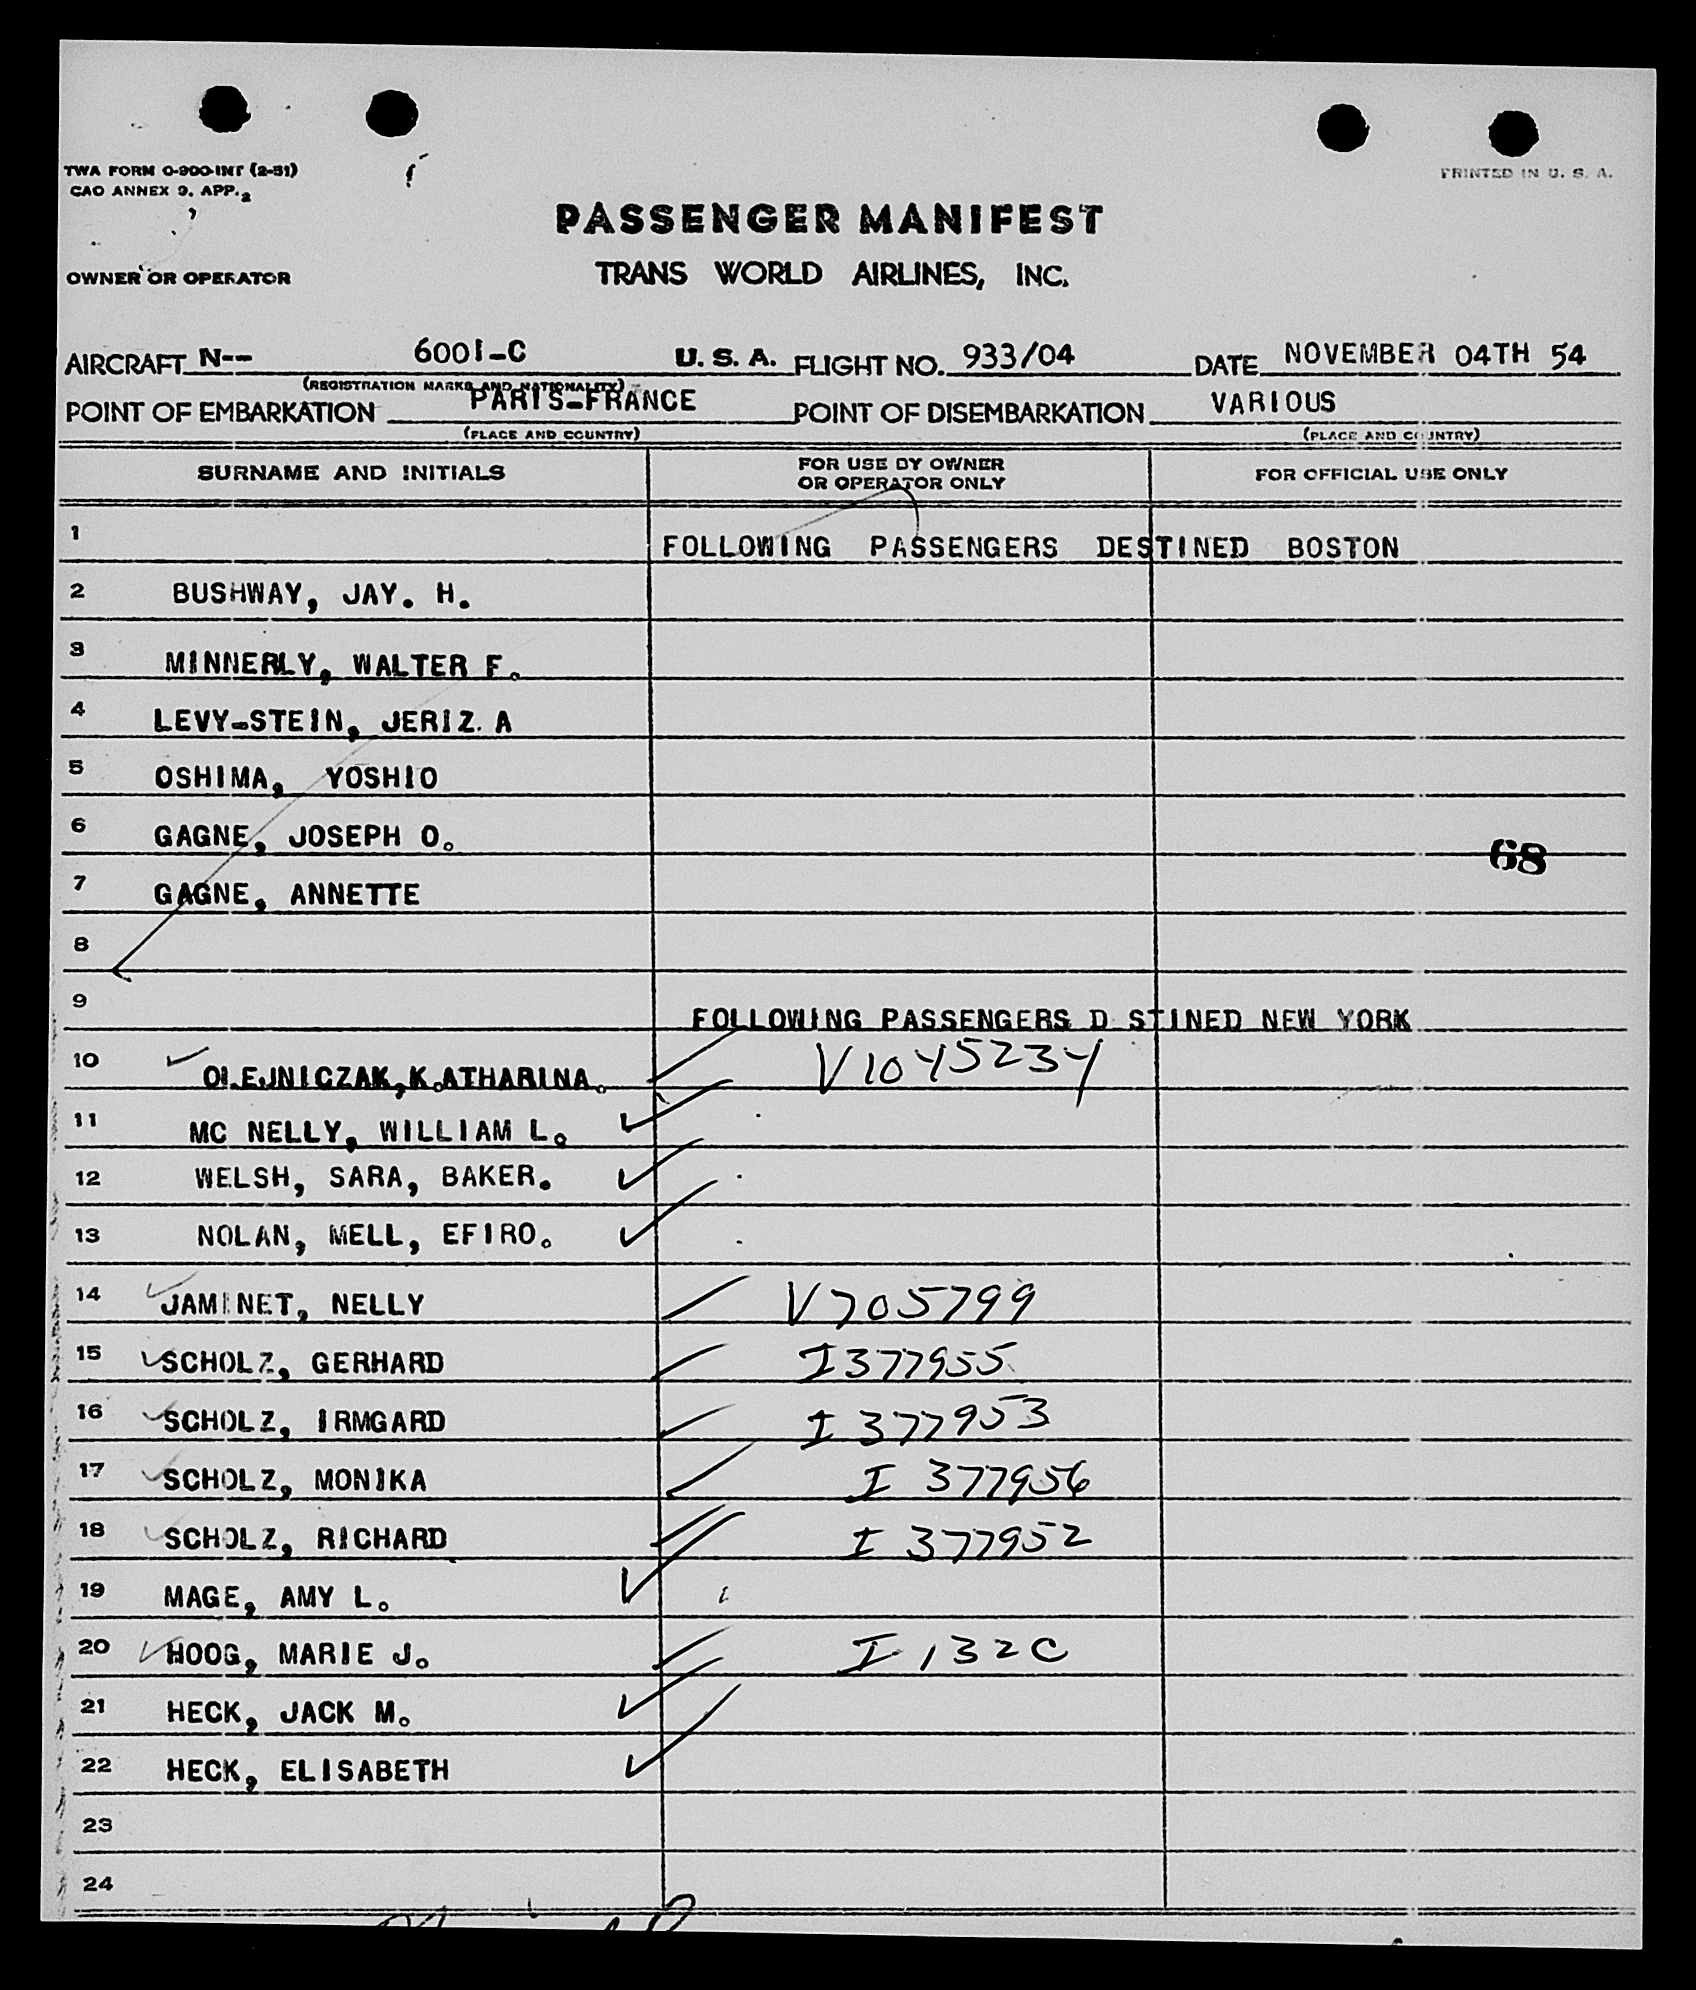 TWA FORM O-900-INT (2-51)
CAO ANNEX 9, APP. 2
PRINTED IN U. S. A.
PASSENGER MANIFEST
OWNER OR OPERATOR
TRANS WORLD AIRLINES, INC.
AIRCRAFT N-- 6001-C U. S. A. FLIGHT NO. 933/04 DATE NOVEMBER 04TH 54
(REGISTRATION MARKS AND NATIONALITY)
POINT OF EMBARKATION PARIS-FRANCE POINT OF DISEMBARKATION VARIOUS
(PLACE AND COUNTRY) (PLACE AND COUNTRY)
SURNAME AND INITIALS FOR USE BY OWNER OR OPERATOR ONLY FOR OFFICIAL USE ONLY
1 FOLLOWING PASSENGERS DESTINED BOSTON
2 BUSHWAY, JAY. H.
3 MINNERLY, WALTER F.
4 LEVY-STEIN, JERIZ. A
5 OSHIMA, YOSHIO
6 GAGNE, JOSEPH O.
68
7 GAGNE, ANNETTE
8
9 FOLLOWING PASSENGERS D STINED NEW YORK
10 OLEJNICZAK, K.ATHARINA. V1045234
11 MC NELLY, WILLIAM L.
12 WELSH, SARA, BAKER.
13 NOLAN, MELL, EFIRO.
14 JAMINET, NELLY V705799
15 SCHOLZ, GERHARD I377955
16 SCHOLZ, IRMGARD I 377953
17 SCHOLZ, MONIKA I 377956
18 SCHOLZ, RICHARD I 377952
19 MAGE, AMY L.
20 HOOG, MARIE J. I 132C
21 HECK, JACK M.
22 HECK, ELISABETH
23
24